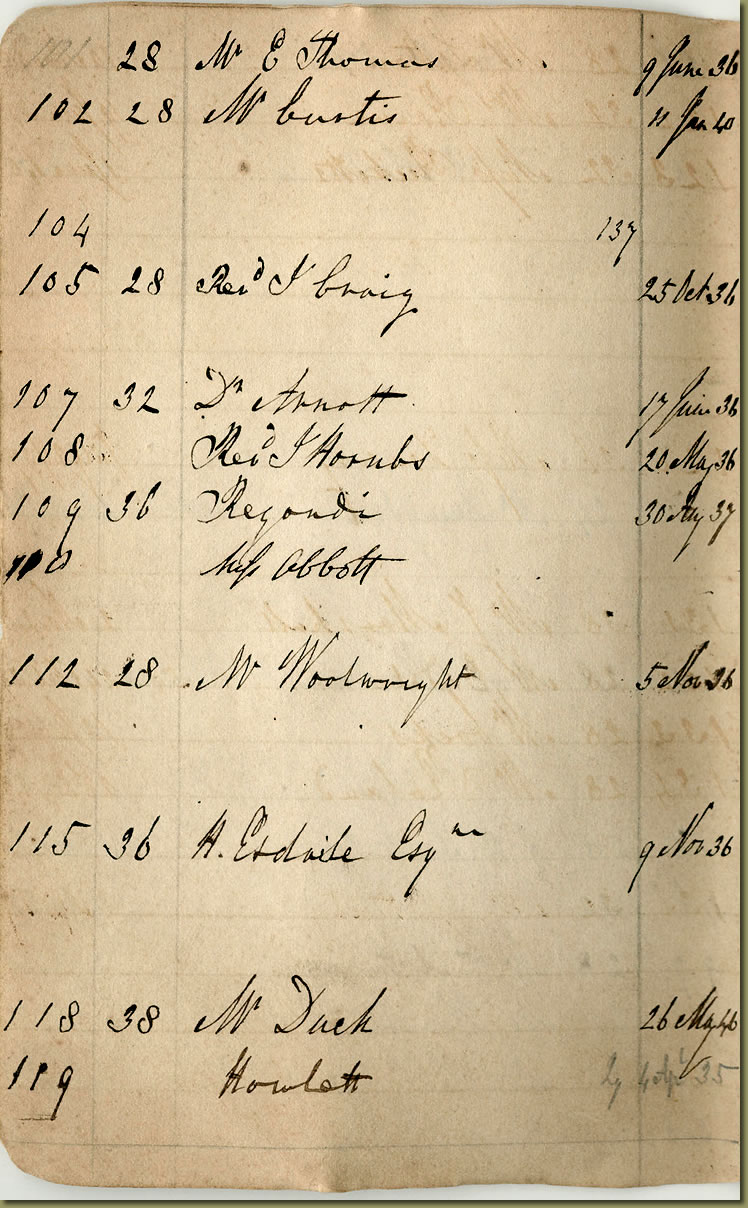 101 28 Mr E Thomas 9 June 36
102 28 Mr Curtis 11 Jan 40
104 137
105 28 Revd J Craig 25 Oct 36
107 32 Dr Arnott 17 June 36
108 Revd J Hornbs 20 May 36
109 36 Regondi 30 Aug 37
110 Miss Abbott
112 28 Mr Woolwright 5 Nov 36
115 36 H. Esdaile Esqre 9 Nov 36
118 38 Mr Duck 26 May 46
119 Howlett 4 Apl 35